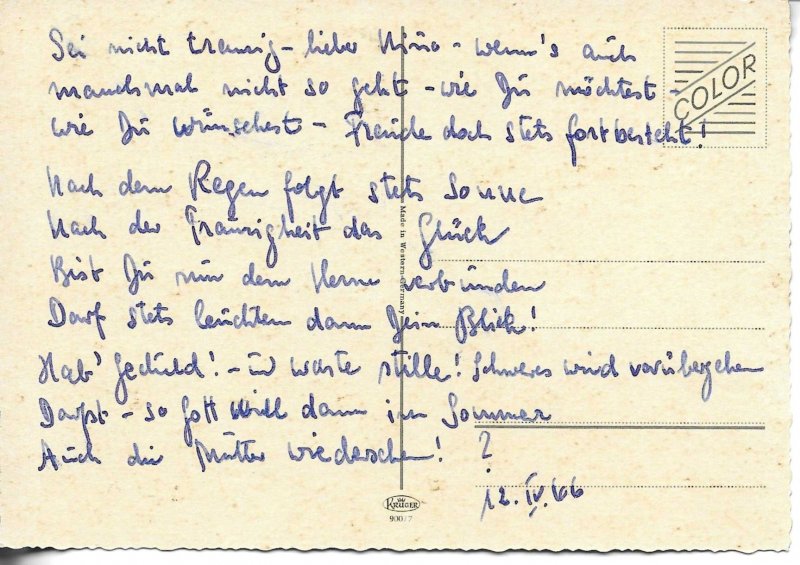 Sei nicht traurig – lieber Nino – wenn's auch
manchmal nicht so geht – wie Du möchtest –
wie Du wünschest – Freude doch stets fortbesteht!
Nach dem Regen folgt stets Sonne
Nach der Traurigkeit das Glück
Bist Du nur dem Herrn verbunden
Darf stets leuchten dann Dein Blick!
Hab' Geduld! – und warte stille! Schweres wird vorübergehen
Darfst – so Gott will dann im Sommer
Auch die Mutter wiedersehen! ?
12. IV. 66
COLOR
Made in Western-Germany
KRÜGER
900/7